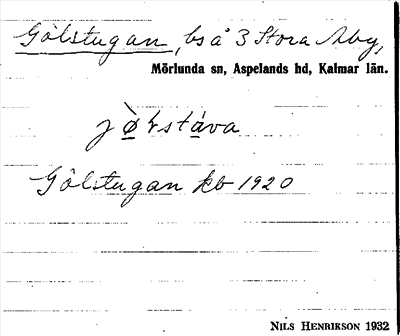 Gölstugan, bs å 3 Stora Aby,
Mörlunda sn, Aspelands hd, Kalmar län.
Gölstugan kb 1920
Nils Henrikson 1932